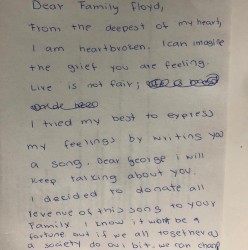 Dear Family Floyd,
From the deepest of my heart,
I am heartbroken. I can imagine
the grief you are feeling.
Life is not fair;
I tried my best to express
my feelings by writing you
a song. Dear George i will
keep talking about you.
I decided to donate all
revenue of this song to your
Family. I know it wont be a
fortune but if we all together as
a society do our bit, we can change